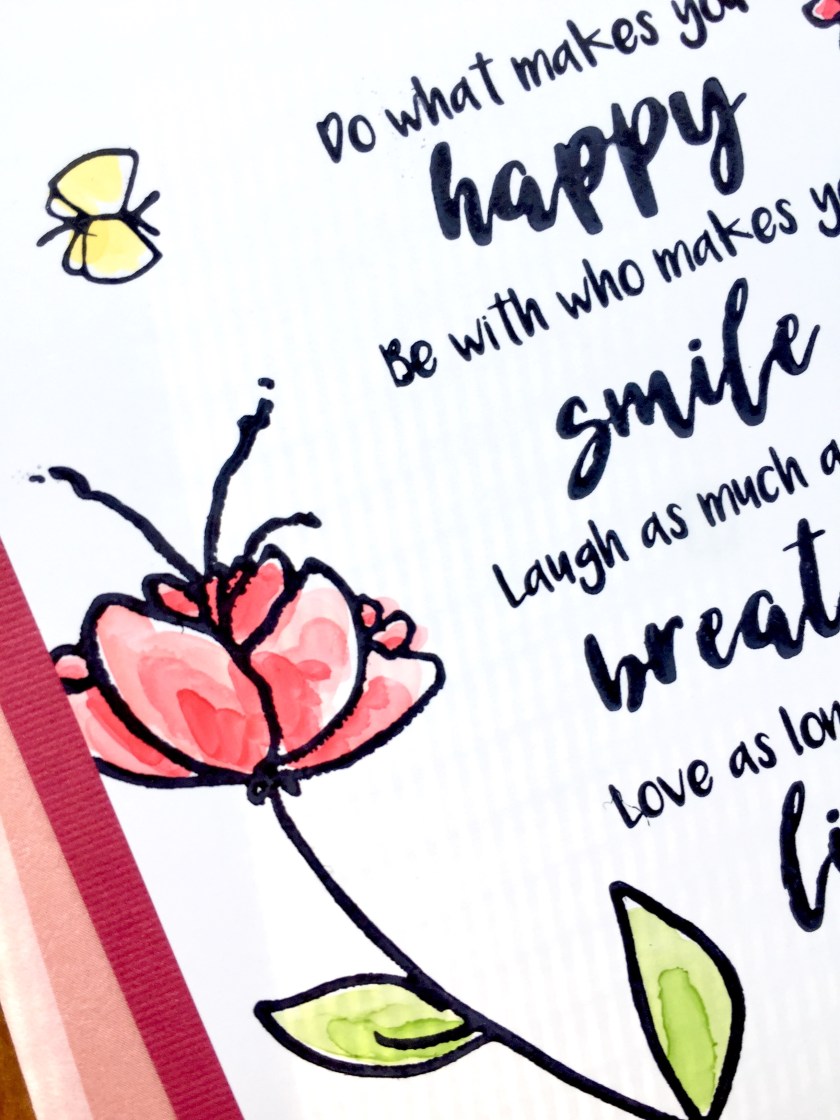 Do what makes you
happy
Be with who makes y
smile
Laugh as much a
breat
Love as lon
li